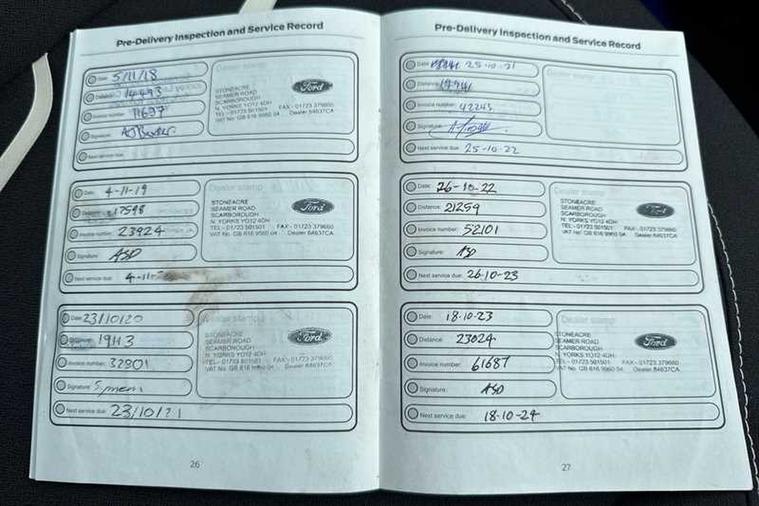 Pre-Delivery Inspection and Service Record
Date: 5/11/18
Distance: 14493
Invoice number: 11697
Signature:
Next service due:
STONEACRE
SEAMER ROAD
SCARBOROUGH
N. YORKS YO12 4DH
TEL - 01723 501501 FAX - 01723 379660
VAT No. GB 816 9960 04 Dealer 84637CA
Ford
Date: 4-11-19
Distance: 17598
Invoice number: 23924
Signature: ASD
Next service due: 4-11-
Dealer stamp
STONEACRE
SEAMER ROAD
SCARBOROUGH
N. YORKS YO12 4DH
TEL - 01723 501501 FAX - 01723 379660
VAT No. GB 816 9960 04 Dealer 84637CA
Ford
Date: 23/10/20
Distance: 19113
Invoice number: 32301
Signature:
Next service due: 23/10/21
Dealer stamp
STONEACRE
SEAMER ROAD
SCARBOROUGH
N. YORKS YO12 4DH
TEL - 01723 501501 FAX - 01723 379660
VAT No. GB 816 9960 04 Dealer 84637CA
Ford
26
Pre-Delivery Inspection and Service Record
Date: 25-10-21
Distance:
Invoice number: 42245
Signature:
Next service due: 25-10-22
Date: 26-10-22
Distance: 21259
Invoice number: 52101
Signature: ASD
Next service due: 26-10-23
Dealer stamp
STONEACRE
SEAMER ROAD
SCARBOROUGH
N. YORKS YO12 4DH
TEL - 01723 501501 FAX - 01723 379660
VAT No. GB 816 9960 04 Dealer 84637CA
Ford
Date: 18-10-23
Distance: 23024
Invoice number: 61687
Signature: ASD
Next service due: 18-10-24
Dealer stamp
STONEACRE
SEAMER ROAD
SCARBOROUGH
N. YORKS YO12 4DH
TEL - 01723 501501 FAX - 01723 379660
VAT No. GB 816 9960 04 Dealer 84637CA
Ford
27